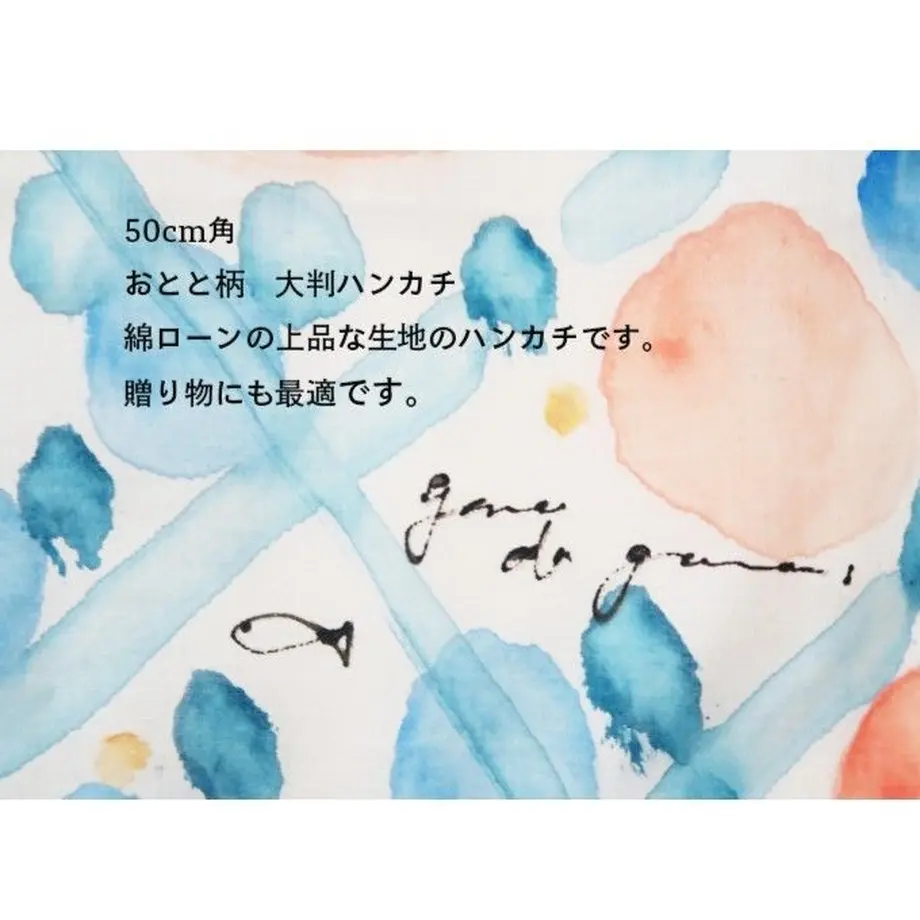 50cm角
おとと柄　大判ハンカチ
綿ローンの上品な生地のハンカチです。
贈り物にも最適です。